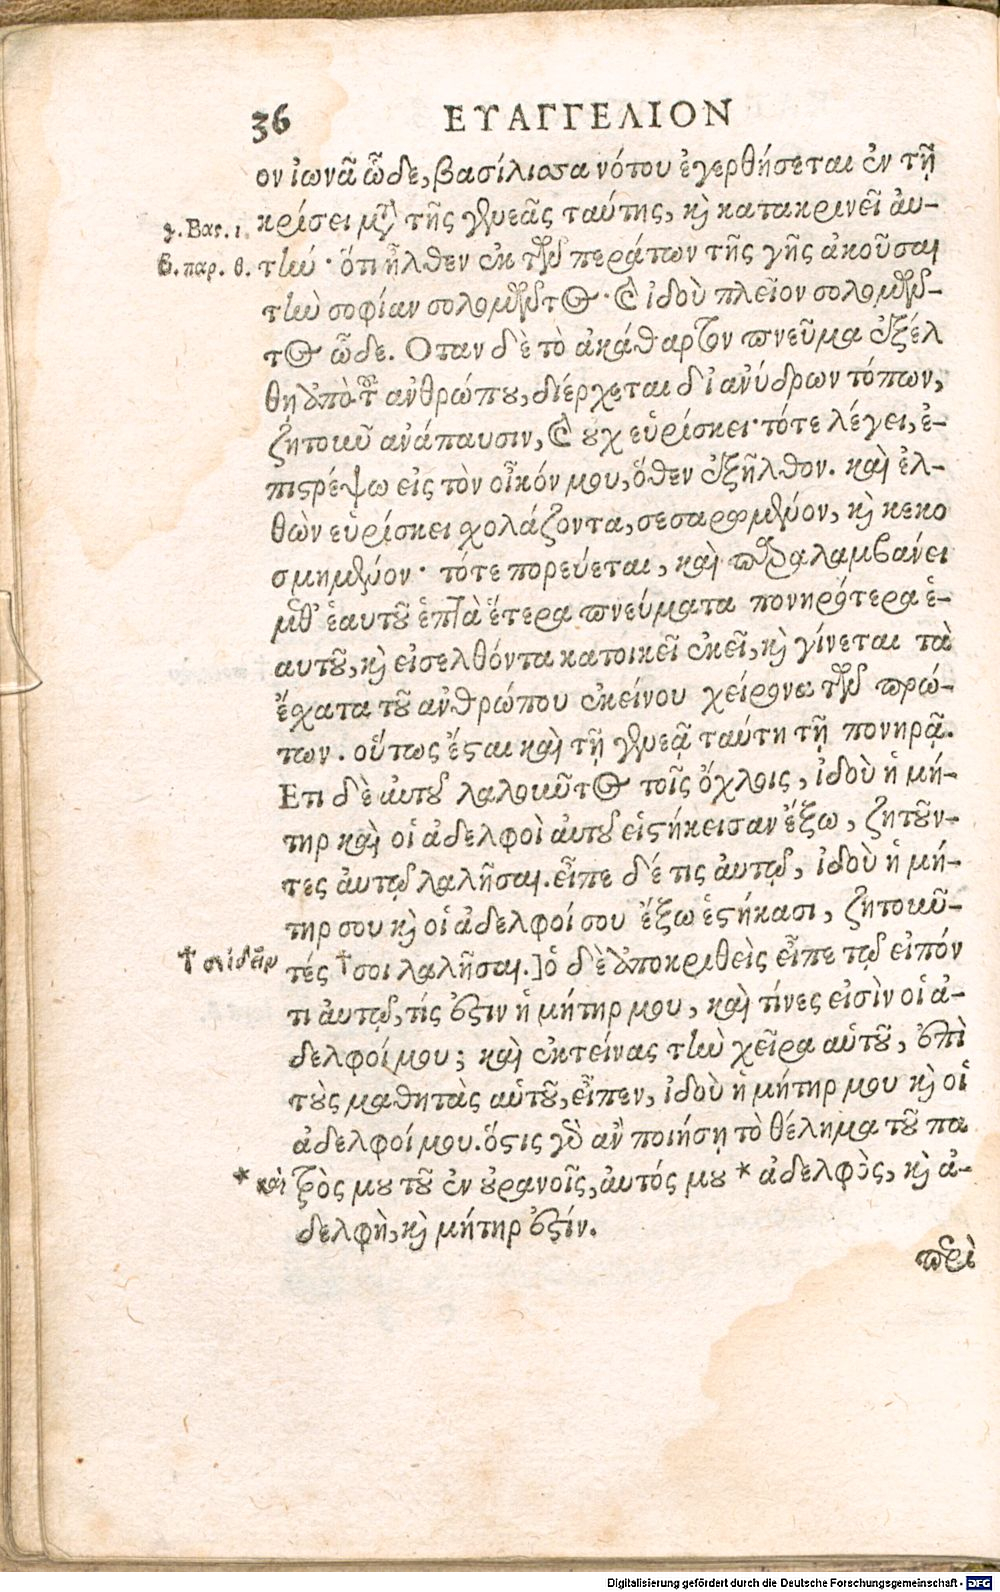 36 ΕΥΑΓΓΕΛΙΟΝ
ον ἰωνᾶ ὧδε, βασίλισσα νότου ἐγερθήσεται ἐν τῇ
γ. Βασ. ι. κρίσει μετὰ τῆς γενεᾶς ταύτης, καὶ κατακρινεῖ αὐ-
β. παρ. θ. τὴν· ὅτι ἦλθεν ἐκ τῶν περάτων τῆς γῆς ἀκοῦσαι
τὴν σοφίαν σολομῶντος· καὶ ἰδοὺ πλεῖον σολομῶν-
τος ὧδε. Οταν δὲ τὸ ἀκάθαρτον πνεῦμα ἐξέλ
θῃ ἀπὸ τοῦ ἀνθρώπου, διέρχεται δι ἀνύδρων τόπων,
ζητοιοῦ ἀνάπαυσιν, καὶ οὐχ εὑρίσκει· τότε λέγει, ἐ-
πιστρέψω εἰς τὸν οἶκόν μου, ὅθεν ἐξῆλθον. καὶ ἐλ-
θὼν εὑρίσκει σχολάζοντα, σεσαρωμένον, καὶ κεκο
σμημένον· τότε πορεύεται, καὶ παραλαμβάνει
μεθ' ἑαυτοῦ ἑπτὰ ἕτερα πνεύματα πονηρότερα ἑ-
αυτοῦ, καὶ εἰσελθόντα κατοικεῖ ἐκεῖ, καὶ γίνεται τὰ
ἔσχατα τοῦ ἀνθρώπου ἐκείνου χείρονα τῶν πρώ-
των. οὕτως ἔσται καὶ τῇ γενεᾷ ταύτῃ τῇ πονηρᾷ.
Ετι δὲ αὐτοῦ λαλοιοῦτος τοῖς ὄχλοις, ἰδοὺ ἡ μή-
τηρ καὶ οἱ ἀδελφοὶ αὐτοῦ εἱστήκεισαν ἔξω, ζητοῦν-
τες αὐτῷ λαλῆσαι. εἶπε δέ τις αὐτῷ, ἰδοὺ ἡ μή-
τηρ σου καὶ οἱ ἀδελφοί σου ἔξω ἑστήκασι, ζητοιοῦ-
† σε ἰδεῖν τές † σοι λαλῆσαι.] ὁ δὲ ἀποκριθεὶς εἶπε τῷ εἰπόν
τι αὐτῷ, τίς ἐστιν ἡ μήτηρ μου, καὶ τίνες εἰσὶν οἱ ἀ-
δελφοί μου; καὶ ἐκτείνας τὴν χεῖρα αὑτοῦ, ἐπὶ
τοὺς μαθητὰς αὑτοῦ, εἶπεν, ἰδοὺ ἡ μήτηρ μου καὶ οἱ
ἀδελφοί μου. ὅστις γὰρ ἂν ποιήσῃ τὸ θέλημα τοῦ πα
* καὶ τρὸς μου τοῦ ἐν οὐρανοῖς, αὐτός μου * ἀδελφὸς, καὶ ἀ-
δελφὴ, καὶ μήτηρ ἐστίν.
περὶ
Digitalisierung gefördert durch die Deutsche Forschungsgemeinschaft - DFG